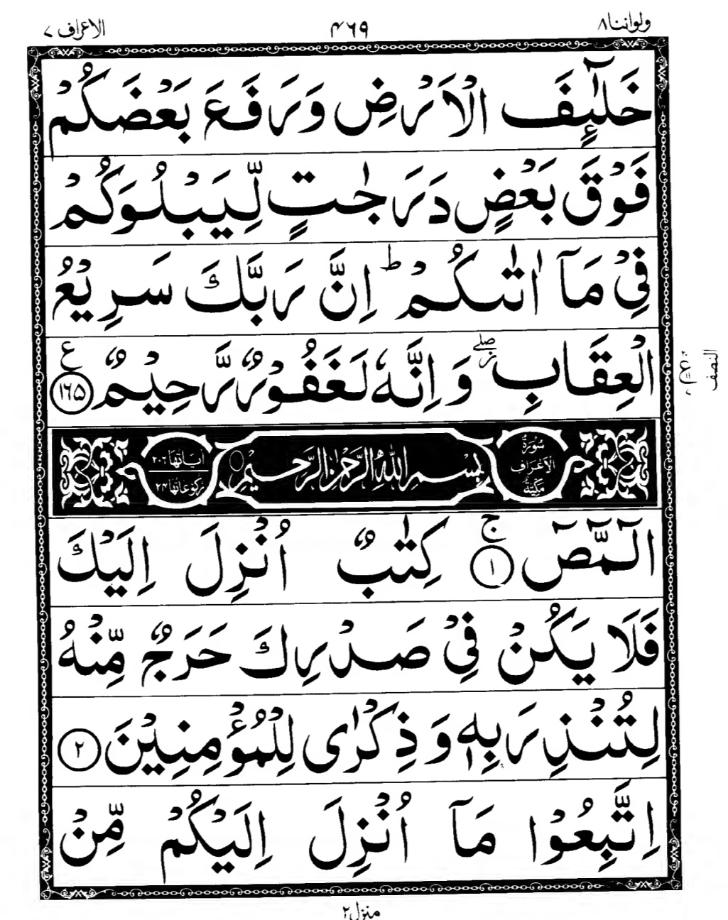 ولواننا ٨
٤٦٩
الاعراف ٧
خَلٰٓئِفَ الْاَرْضِ وَرَفَعَ بَعْضَكُمْ
فَوْقَ بَعْضٍ دَرَجٰتٍ لِّيَبْلُوَكُمْ
فِيْ مَاۤ اٰتٰىكُمْ ؕ اِنَّ رَبَّكَ سَرِيْعُ
الْعِقَابِ ۖز وَاِنَّهٗ لَغَفُوْرٌ رَّحِيْمٌ ع ١٦٥
النصف
سُوْرَةُ الْاَعْرَافِ مَكِّيَّةٌ
بِسْمِ اللهِ الرَّحْمٰنِ الرَّحِيْمِ
اٰيَاتُهَا ٢٠٦
رُكُوْعَاتُهَا ٢٤
الٓمّٓصٓ ۚ ١ كِتٰبٌ اُنْزِلَ اِلَيْكَ
فَلَا يَكُنْ فِيْ صَدْرِكَ حَرَجٌ مِّنْهُ
لِتُنْذِرَ بِهٖ وَذِكْرٰى لِلْمُؤْمِنِيْنَ ٢
اِتَّبِعُوْا مَاۤ اُنْزِلَ اِلَيْكُمْ مِّنْ
منزل ٢